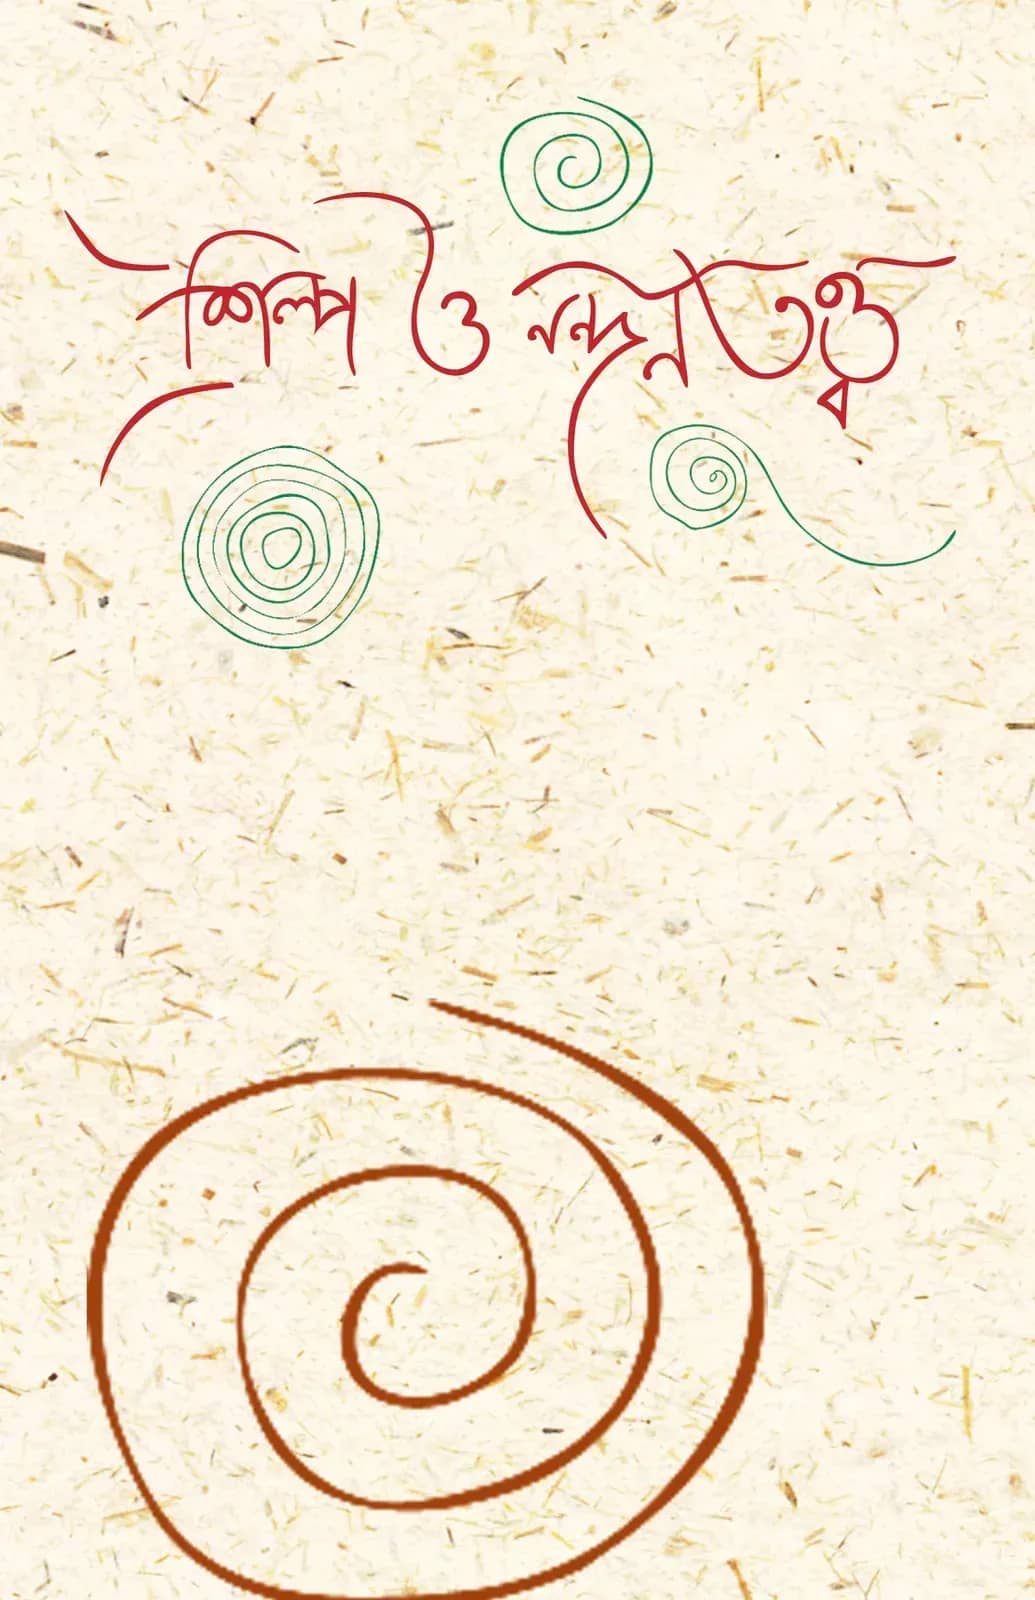 শিল্প ও নন্দনতত্ত্ব